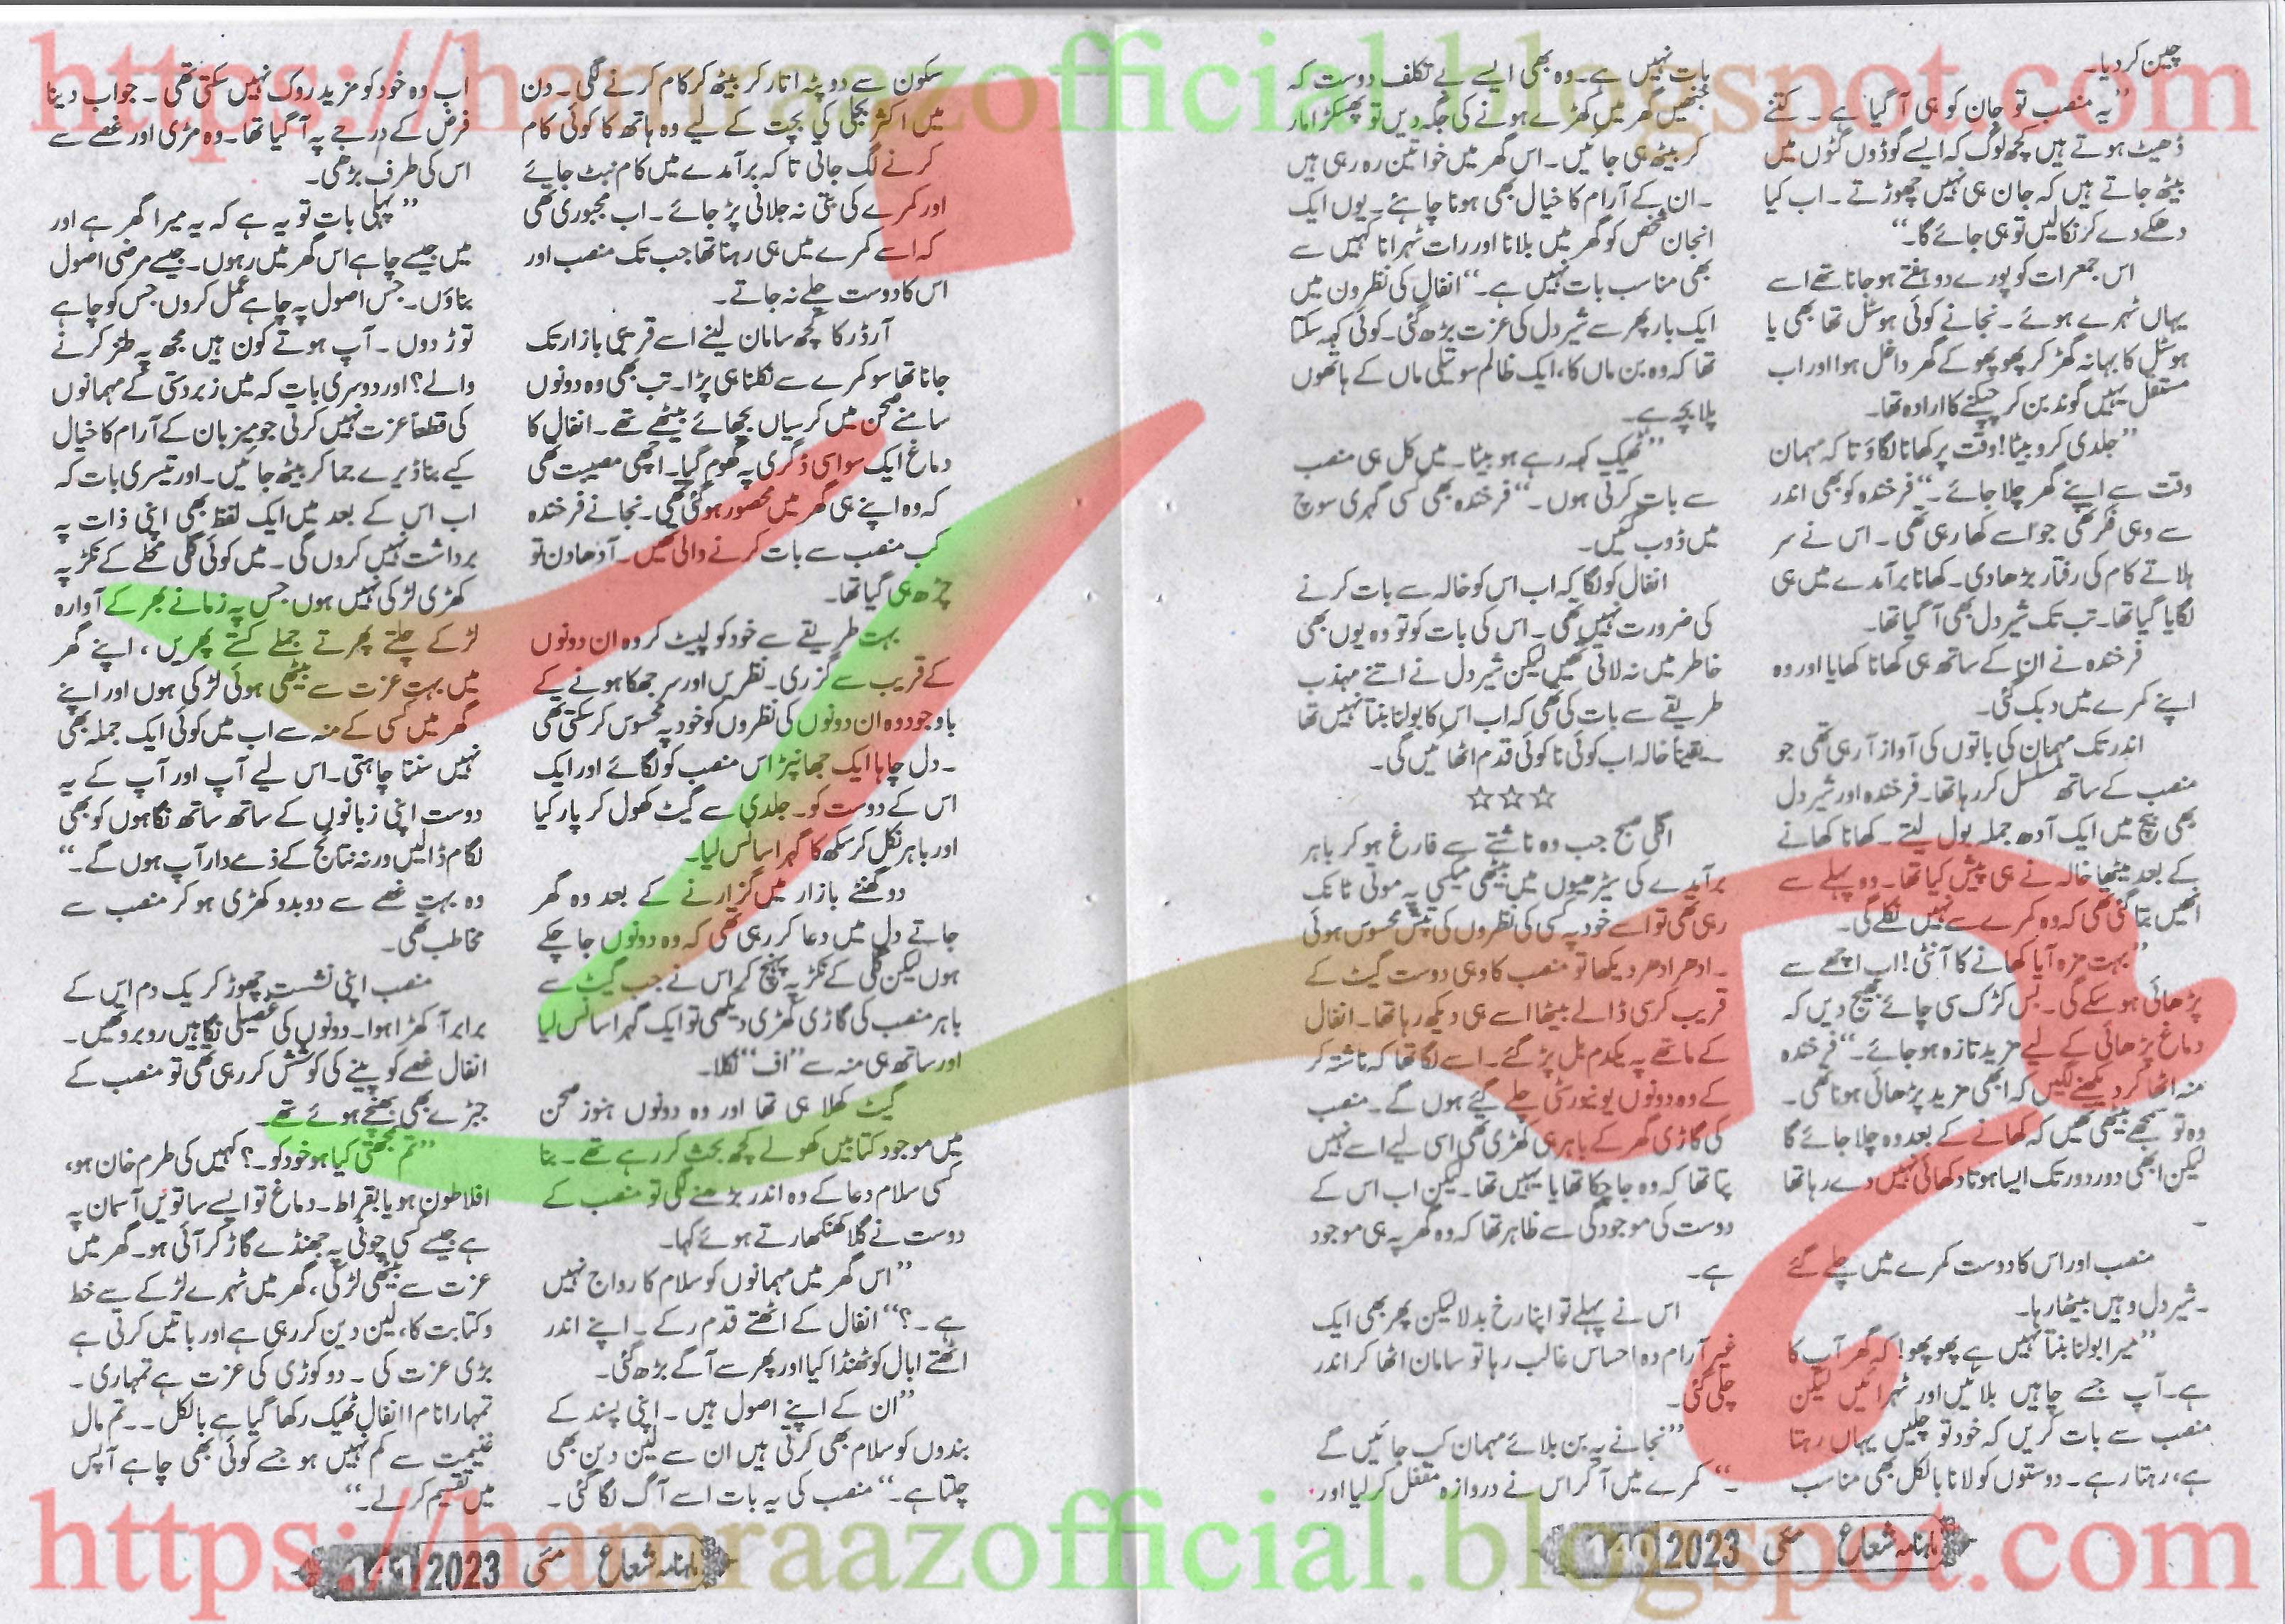 https://hamraazofficial.blogspot.com
چین کر دیا۔
”یہ منصب تو جان کو ہی آ گیا ہے ۔ کتنے
ڈھیٹ ہوتے ہیں کچھ لوگ کہ ایسے گوڈوں گٹوں میں
بیٹھ جاتے ہیں کہ جان ہی نہیں چھوڑتے ۔ اب کیا
دھکے دے کر نکالیں تو ہی جائے گا۔“
اس جمعرات کو پورے دو ہفتے ہو جانا تھے اسے
یہاں ٹہرے ہوئے ۔ نجانے کوئی ہوسٹل تھا بھی یا
ہوسٹل کا بہانہ گھڑ کر پھوپھو کے گھر داخل ہوا اور اب
مستقل یہیں گوند بن کر چپکنے کا ارادہ تھا۔
”جلدی کرو بیٹا! وقت پر کھانا لگاؤ تا کہ مہمان
وقت سے اپنے گھر چلا جائے ۔“ فرخندہ کو بھی اندر
سے وہی فکر تھی جو اسے کھا رہی تھی ۔ اس نے سر
ہلاتے کام کی رفتار بڑھا دی۔ کھانا برآمدے میں ہی
لگایا گیا تھا۔ تب تک شیر دل بھی آ گیا تھا۔
فرخندہ نے ان کے ساتھ ہی کھانا کھایا اور وہ
اپنے کمرے میں دبک گئی۔
اندر تک مہمان کی باتوں کی آواز آ رہی تھی جو
منصب کے ساتھ مسلسل کر رہا تھا۔ فرخندہ اور شیر دل
بھی بیچ میں ایک آدھ جملہ بول لیتے ۔ کھانا کھانے
کے بعد میٹھا خالہ نے ہی پیش کیا تھا۔ وہ پہلے سے
انھیں بتا گئی تھی کہ وہ کمرے سے نہیں نکلے گی۔
”بہت مزہ آیا کھانے کا آنٹی! اب اچھے سے
پڑھائی ہو سکے گی۔ بس کڑک سی چائے بھیج دیں کہ
دماغ پڑھائی کے لیے مزید تازہ ہو جائے ۔“ فرخندہ
منہ اٹھا کر دیکھنے لگیں کہ ابھی مزید پڑھائی ہونا تھی ۔
وہ تو سمجھے بیٹھی تھیں کہ کھانے کے بعد وہ چلا جائے گا
لیکن ابھی دور دور تک ایسا ہوتا دکھائی نہیں دے رہا تھا
۔
منصب اور اس کا دوست کمرے میں چلے گئے
۔ شیر دل وہیں بیٹھا رہا۔
”میرا بولنا بنتا نہیں ہے پھوپھو! کہ گھر آپ کا
ہے۔ آپ جسے چاہیں بلائیں اور ٹہرائیں لیکن
منصب سے بات کریں کہ خود تو چلیں یہاں رہتا
ہے، رہتا رہے ۔ دوستوں کو لانا بالکل بھی مناسب
بات نہیں ہے۔ وہ بھی ایسے بے تکلف دوست کہ
جنھیں گھر میں کھڑے ہونے کی جگہ دیں تو پھسکڑا مار
کر بیٹھ ہی جائیں۔ اس گھر میں خواتین رہ رہی ہیں
۔ ان کے آرام کا خیال بھی ہونا چاہئے ۔ یوں ایک
انجان شخص کو گھر میں بلانا اور رات ٹہرانا کہیں سے
بھی مناسب بات نہیں ہے۔“ انفال کی نظروں میں
ایک بار پھر سے شیر دل کی عزت بڑھ گئی۔ کوئی کہہ سکتا
تھا کہ وہ بن ماں کا، ایک ظالم سوتیلی ماں کے ہاتھوں
پلا بچہ ہے۔
”ٹھیک کہہ رہے ہو بیٹا۔ میں کل ہی منصب
سے بات کرتی ہوں ۔“ فرخندہ بھی کسی گہری سوچ
میں ڈوب گئیں۔
انفال کو لگا کہ اب اس کو خالہ سے بات کرنے
کی ضرورت نہیں تھی ۔ اس کی بات کو تو وہ یوں بھی
خاطر میں نہ لاتی تھیں لیکن شیر دل نے اتنے مہذب
طریقے سے بات کی تھی کہ اب اس کا بولنا بنتا نہیں تھا
۔ یقیناً خالہ اب کوئی نا کوئی قدم اٹھائیں گی۔
☆☆☆
اگلی صبح جب وہ ناشتے سے فارغ ہو کر باہر
برآمدے کی سیڑھیوں میں بیٹھی میکسی پہ موتی ٹانک
رہی تھی تو اسے خود پہ کسی کی نظروں کی تپش محسوس ہوئی
۔ ادھر ادھر دیکھا تو منصب کا وہی دوست گیٹ کے
قریب کرسی ڈالے بیٹھا اسے ہی دیکھ رہا تھا۔ انفال
کے ماتھے پہ یکدم بل پڑ گئے ۔ اسے لگا تھا کہ ناشتہ کر
کے وہ دونوں یونیورسٹی چلے گیے ہوں گے ۔ منصب
کی گاڑی گھر کے باہر ہی کھڑی تھی اسی لیے اسے نہیں
پتا تھا کہ وہ جا چکا تھا یا یہیں تھا۔ لیکن اب اس کے
دوست کی موجودگی سے ظاہر تھا کہ وہ گھر پہ ہی موجود
ہے۔
اس نے پہلے تو اپنا رخ بدلا لیکن پھر بھی ایک
غیر آرام دہ احساس غالب رہا تو سامان اٹھا کر اندر
چلی گئی۔
”نجانے یہ بن بلائے مہمان کب جائیں گے
۔“ کمرے میں آ کر اس نے دروازہ مقفل کر لیا اور
ماہنامہ شعاع مئی 2023 140
سکون سے دوپٹہ اتار کر بیٹھ کر کام کرنے لگی ۔ دن
میں اکثر بجلی کی بچت کے لیے وہ ہاتھ کا کوئی کام
کرنے لگ جاتی تا کہ برآمدے میں کام نبٹ جائے
اور کمرے کی بتی نہ جلانی پڑ جائے ۔ اب مجبوری تھی
کہ اسے کمرے میں ہی رہنا تھا جب تک منصب اور
اس کا دوست چلے نہ جاتے ۔
آرڈر کا کچھ سامان لینے اسے قریبی بازار تک
جانا تھا سو کمرے سے نکلنا ہی پڑا۔ تب بھی وہ دونوں
سامنے صحن میں کرسیاں بچھائے بیٹھے تھے ۔ انفال کا
دماغ ایک سو اسی ڈگری پہ گھوم گیا۔ اچھی مصیبت تھی
کہ وہ اپنے ہی گھر میں محصور ہو گئی تھی۔ نجانے فرخندہ
کب منصب سے بات کرنے والی تھیں ۔ آدھا دن تو
چڑھ ہی گیا تھا۔
بہت طریقے سے خود کو لپیٹ کر وہ ان دونوں
کے قریب سے گزری۔ نظریں اور سر جھکا ہونے کے
باوجود وہ ان دونوں کی نظروں کو خود پہ محسوس کر سکتی تھی
۔ دل چاہا ایک جھانپڑ اس منصب کو لگائے اور ایک
اس کے دوست کو۔ جلدی سے گیٹ کھول کر پار کیا
اور باہر نکل کر سکھ کا گہرا سانس لیا۔
دو گھنٹے بازار میں گزارنے کے بعد وہ گھر
جاتے دل میں دعا کر رہی تھی کہ وہ دونوں جا چکے
ہوں لیکن گلی کے نکڑ پہ پہنچ کر اس نے جب گیٹ سے
باہر منصب کی گاڑی کھڑی دیکھی تو ایک گہرا سانس لیا
اور ساتھ ہی منہ سے ”اف“ نکلا۔
گیٹ کھلا ہی تھا اور وہ دونوں ہنوز صحن
میں موجود کتابیں کھولے کچھ بحث کر رہے تھے ۔ بنا
کسی سلام دعا کے وہ اندر بڑھنے لگی تو منصب کے
دوست نے گلا کھنکھارتے ہوئے کہا۔
”اس گھر میں مہمانوں کو سلام کا رواج نہیں
ہے ۔؟“ انفال کے اٹھتے قدم رکے ۔ اپنے اندر
اٹھتے ابال کو ٹھنڈا کیا اور پھر سے آگے بڑھ گئی۔
”ان کے اپنے اصول ہیں ۔ اپنی پسند کے
بندوں کو سلام بھی کرتی ہیں ان سے لین دین بھی
چلتا ہے ۔“ منصب کی یہ بات اسے آگ لگا گئی ۔
اب وہ خود کو مزید روک نہیں سکتی تھی ۔ جواب دینا
فرض کے درجے پہ آ گیا تھا۔ وہ مڑی اور غصے سے
اس کی طرف بڑھی۔
”پہلی بات تو یہ ہے کہ یہ میرا گھر ہے اور
میں جیسے چاہے اس گھر میں رہوں۔ جیسے مرضی اصول
بناؤں ۔ جس اصول پہ چاہے عمل کروں جس کو چاہے
توڑ دوں ۔ آپ ہوتے کون ہیں مجھ پہ طنز کرنے
والے؟ اور دوسری بات کہ میں زبردستی کے مہمانوں
کی قطعاً عزت نہیں کرتی جو میزبان کے آرام کا خیال
کیے بنا ڈیرے جما کر بیٹھ جائیں ۔ اور تیسری بات کہ
اب اس کے بعد میں ایک لفظ بھی اپنی ذات پہ
برداشت نہیں کروں گی ۔ میں کوئی گلی محلے کے نکڑ پہ
کھڑی لڑکی نہیں ہوں جس پہ زمانے بھر کے آوارہ
لڑکے چلتے پھرتے جملے کستے پھریں ، اپنے گھر
میں بہت عزت سے بیٹھی ہوئی لڑکی ہوں اور اپنے
گھر میں کسی کے منہ سے اب میں کوئی ایک جملہ بھی
نہیں سننا چاہتی۔ اس لیے آپ اور آپ کے یہ
دوست اپنی زبانوں کے ساتھ ساتھ نگاہوں کو بھی
لگام ڈالیں ورنہ نتائج کے ذمے دار آپ ہوں گے ۔“
وہ بہت غصے سے دوبدو کھڑی ہو کر منصب سے
مخاطب تھی۔
منصب اپنی نشست چھوڑ کر یک دم اس کے
برابر آ کھڑا ہوا۔ دونوں کی غصیلی نگاہیں روبرو تھیں ۔
انفال غصے کو پینے کی کوشش کر رہی تھی تو منصب کے
جبڑے بھی بھنچے ہوئے تھے ۔
”تم سمجھتی کیا ہو خود کو ۔؟ کہیں کی طرم خان ہو،
افلاطون ہو یا بقراط ۔ دماغ تو ایسے ساتویں آسمان پہ
ہے جیسے کسی چوٹی پہ جھنڈے گاڑ کر آئی ہو۔ گھر میں
عزت سے بیٹھی لڑکی، گھر میں ٹہرے لڑکے سے خط
و کتابت کا، لین دین کر رہی ہے اور باتیں کرتی ہے
بڑی عزت کی ۔ دو کوڑی کی عزت ہے تمہاری ۔
تمہارا نام اانفال ٹھیک رکھا گیا ہے بالکل ۔۔ تم مال
غنیمت سے کم نہیں ہو جسے کوئی بھی چاہے آپس
میں تقسیم کر لے۔“
ماہنامہ شعاع مئی 2023 141
https://hamraazofficial.blogspot.com